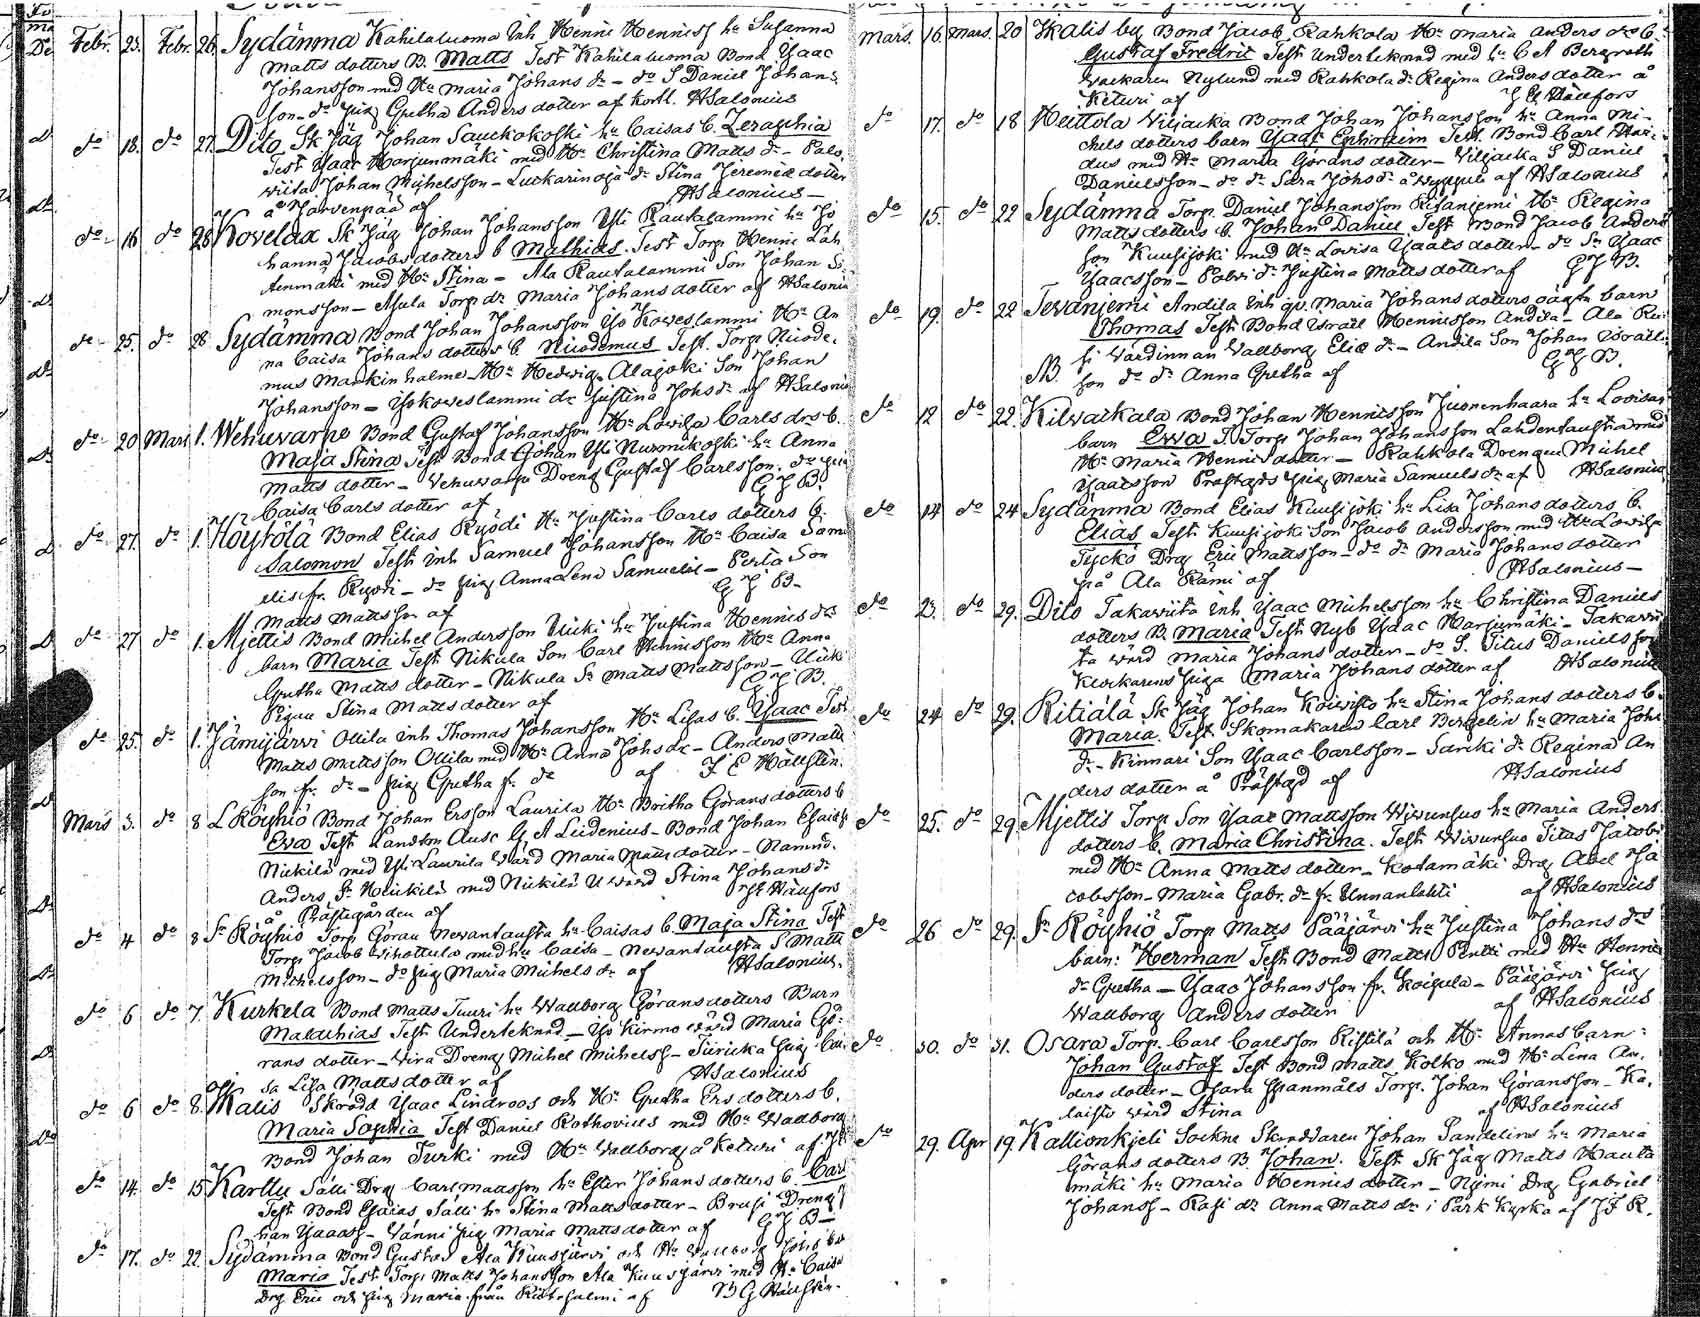 Febr. 23. Febr. 26. Sydänma Kahilaluoma Inh Henric Henricss hu Susanna
Matts dotters B. Matts Test Kahilaluoma Bond Ysaac
Johansson med Hu Maria Johans dr - do S Daniel Johans
son - do Pig Gretha Anders dotter af HSalonius
do 18. do 27. Dito Sk Jäg Johan Sauckokoski hu Caisas b. Zeraphia
Test Ysaac Harjunmäki med Hu Christina Matts dr - Palo
wiita Johan Michelsson - Luckarinoja dr Stina Jeremiæ dotter
å Järvenpää af HSalonius
do 16 do 28 Kovelax Sk Jäg Johan Johansson Yli Rautalammi hu Jo
hanna Jacobs dotters b Mathias. Test Torp Henric Läh
teenmäki med Hu Stina - Ala Rautalammi Son Johan Si
monsson - Torp dr Maria Johans dotter af HSaloniu
do 25. do 28 Sydämma Bond Johan Johansson Yso Koweslammi Hu An
na Caisa Johans dotters b. Nicodemus Test. Torp Nicode
mus Mankinhalme - Hu Hedwig - Alajoki Son Johan
Johansson - Ysokoweslammi dr Justina Johs dr af HSaloniu
do 20 Mars 1. Wehuvarpe Bond Gustaf Johansson Hu Lovisa Carls drs b.
Maja Stina Test Bond Johan Yli Nurmikoski hu Anna
Matts dotter - Vehuvarpe Dreng Gustaf Carlsson. do Pig
Caisa Carls dotter af G J B.
do 27. do 1. Höytölä Bond Elias Ryödi Hu Justina Carls dotters b.
Salomon Test Inh Samuel Johansson Hu Caisa Sam
elis fr. Ryödi - do Pig Anna Lena Samuelis - Perta Son
Matts Mattsson af G J B-
do 27 do 1. Mjettis Bond Michel Andersson Ulicki hu Justina Henrics drs
barn Maria Test Nikula Son Carl Henricsson Hu Anna
Gretha Matts dotter - Nikula Sn Matts Mattsson - Ulicki
Pigan Stina Matts dotter af G J B.
do 25. do 1. Jämijärvi Ollila Inh Thomas Johansson Hu Lisas b. Ysaac Test
Matts Mattsson Ollila med Hu Anna Johs dr - Anders Matts
son fr. do - Pig Gretha fr. do af F E Hällsten.
Mars 3. do 8 L Röyhiö Bond Johan Ersson Laurila Hu Britha Görans dotters b
Ewa Test Landtm Ausc G A Lidenius - Bond Johan Esaiæ
Nickilä med Yli Laurila Wärd Maria Matts dotter - Nämnd.
Anders fr. Heickilä med Nickilä U wärd Stina Johans dr
å Prästegården af G E Hällfors
do 4 do 8 fr Röyhiö Torp Göran Nevantausta hu Caisas b. Maja Stina Test
Torp Jacob Uhottula med hu Caisa - Nevantausta S Matts
Michelsson - do Pig Maria Michels dr af HSalonius.
do 6 do 7. Kurkela Bond Matts Tuuri hu Wallborg Görans dotters Barn
Malachias Test Undertecknad - Yso Kirmo wärd Maria Gö-
rans dotter - Wira Dreng Michel Michelss - Türicka Pig Cai
sa Lisa Matts dotter af HSalonius
do 6 do 8. Kalis Skrädd Ysaac Lindroos och Hu Gretha Ers dotters b.
Maria Sophia Test Daniel Rothovius med Hu Wallborg
Bond Johan Turki med Hu Wallborg å Keturi af
do 14. do 15 Karttu Sälli Drg Carl Mattsson hu Ester Johans dotters b. Carl
Test Bond Esaias Sälli hu Stina Matts dotter - Brusi Dreng
han Ysaacss - Vänni Pig Maria Matts dotter af G J B-
do 17. do 22. Sydämma Bond Gustaf Ala Kuusjärvi och Hu Wallborg Johs
Maria Test Torp Matts Johansson Ala Kuusjärvi med Hu Caisa
Drg Eric och Pig Maria från Ristesalmi af B G Hällsten.
Mars. 16. Mars. 20 Kalis by Bond Jacob Rahkola Hu Maria Anders drs b.
Gustaf Fredric Test Undertecknad med hu C A Bergroth
Wackaren Nylund med Rahkola dr Regina Anders dotter å
Keturi af G E Hällfors
do 17. do 18 Heittola Viljacka Bond Johan Johansson hu Anna Mi-
chels dotters barn Ysaac Ephraim Test. Bond Carl
dus med Hu Maria Görans dotter - Viljacka S Daniel
Danielsson - do dr Sara Johs dr å af HSalonius
do 15. do 22 Sydämma Torp. Daniel Johansson Risaniemi Hu Regina
Matts dotters b. Johan Daniel. Test Bond Jacob Anders
son Kuusijoki med Hu Lovisa Ysaacs dotter - do Sn Ysaac
Ysaacsson - Polvi dr Justina Matts dotter af G J B.
do 19. do 22 Tevanjemi Andila Inh qv. Maria Johans dotters oägta barn
Thomas Test Bond Israel Henricsson Andila - Ala
NB. Wärdinnan Wallborg Eliæ dr - Andila Son Johan Israels
son do dr Anna Gretha af G J B.
do 12 do 22. Kilvackala Bond Johan Henricsson Juonenhaara hu Lovisas
barn Ewa T. Torp Johan Johansson Lahdentausta med
Hu Maria Henrics dotter - Rahkola Drengen Michel
Ysaacsson Prästgds Pig Maria Samuels dr af HSalonius
do 14 do 24 Sydämma Bond Elias Kuusijoki hu Lisa Johans dotters b.
Elias Test Kuusijoki Son Jacob Andersson med Hu Lovisa
Tyckö Drg Eric Mattsson - do dr Maria Johans dotter
på Ala Rämi af HSalonius -
do 23. do 29. Dito Takawiita Inh Ysaac Michelsson hu Christina Daniels
dotters B. Maria Test Nyb Ysaac Harjumäki - Takawii
ta wärd Maria Johans dotter - do S. Titus Danielsson
Klockarens Piga Maria Johans dotter af HSalonius
do 24 do 29. Ritiälä Sk Jäg Johan Koivisto hu Stina Johans dotters b.
Maria. Test. Skomakaren Carl Bergelin hu Maria Johs
dr - Kinnari Son Ysaac Carlsson - Sarcki dr Regina An
ders dotter å Prästgd af HSalonius
do 25. do 29. Mjettis Torp Son Ysaac Mattsson Wiwunsuo hu Maria Anders
dotters b. Maria Christina. Test Wiwunsuo Titus Jacobs
med Hu Anna Matts dotter - Kotamäki Drg Abel Ja
cobsson - Maria Gabr. dr fr. Unnanlahti af HSalonius
do 26 do 29. fr Röyhiö Torp Matts Pääjärvi hu Justina Johans drs
barn: Herman Test Bond Matts Pentti med Hu Henric
dr Gretha - Ysaac Johansson fr. Koipula - Pääjärvi Pig
Wallborg Anders dotter af HSalonius
do 30. do 31. Osara Torp. Carl Carlsson Ristilä och Hu Annas barn:
Johan Gustaf Test Bond Matts Kolko med Hu Lena An-
ders dotter - Osara Spanmåls Torp. Johan Göransson - Ka-
laisto wärd Stina af HSalonius
do 29. Apr 19. Kallionkjeli Sockne Skräddaren Johan Sandelins hu Maria
Görans dotters B. Johan. Test Sk Jäg Matts Hauta
mäki hu Maria Henrics dotter - Niemi Drg Gabriel
Johanss - Rasi dr Anna Matts dr i Park Kyrka af J F R.